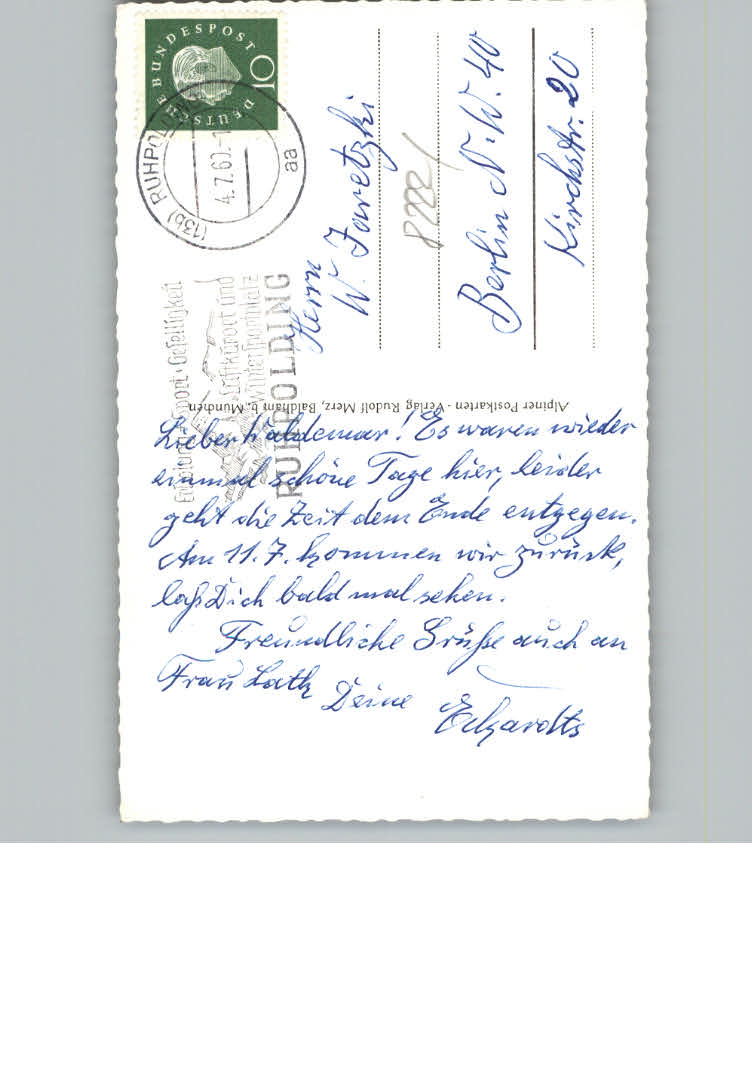 DEUTSCHE BUNDESPOST
10
(13b) RUHPOLDING
4.7.60.-1
aa
Sport · Geselligkeit
Luftkurort und
Wintersportplatz
RUHPOLDING
Herrn
W. Jaretzki
Berlin N.W. 40
Kirchstr. 20
Alpiner Postkarten - Verlag Rudolf Merz, Baldham b. München
Lieber Waldemar! Es waren wieder
einmal schöne Tage hier, leider
geht die Zeit dem Ende entgegen.
Am 11.7. kommen wir zurück,
laß Dich bald mal sehen.
Freundliche Grüße auch an
Frau Lath
Deine Eckardts